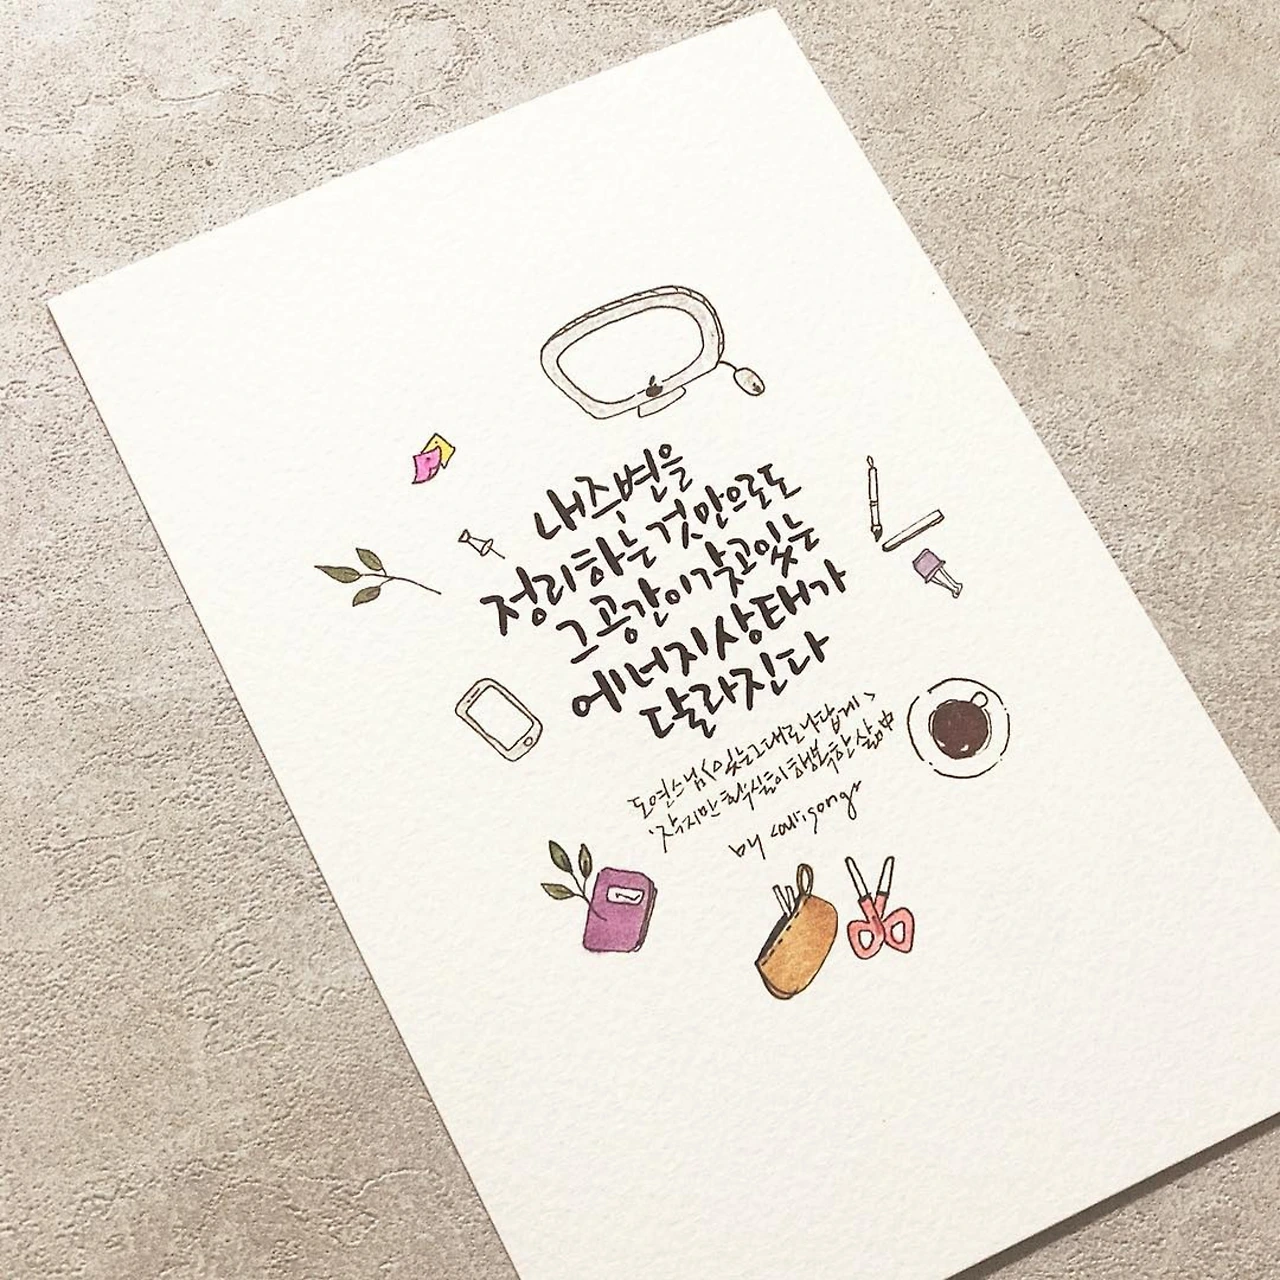 내 주변을
정리하는 것만으로도
그 공간이 갖고 있는
에너지 상태가
달라진다
도연스님 <있는 그대로 나답게>
'작지만 확실히 행복한 삶' 中
by calligongs